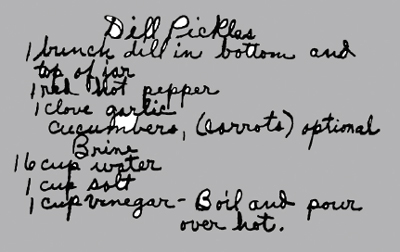 Dill Pickles
1 bunch dill in bottom and
top of jar
1 red hot pepper
1 clove garlic
cucumbers, (carrots) optional
Brine
16 cup water
1 cup salt
1 cup vinegar - Boil and pour
over hot.